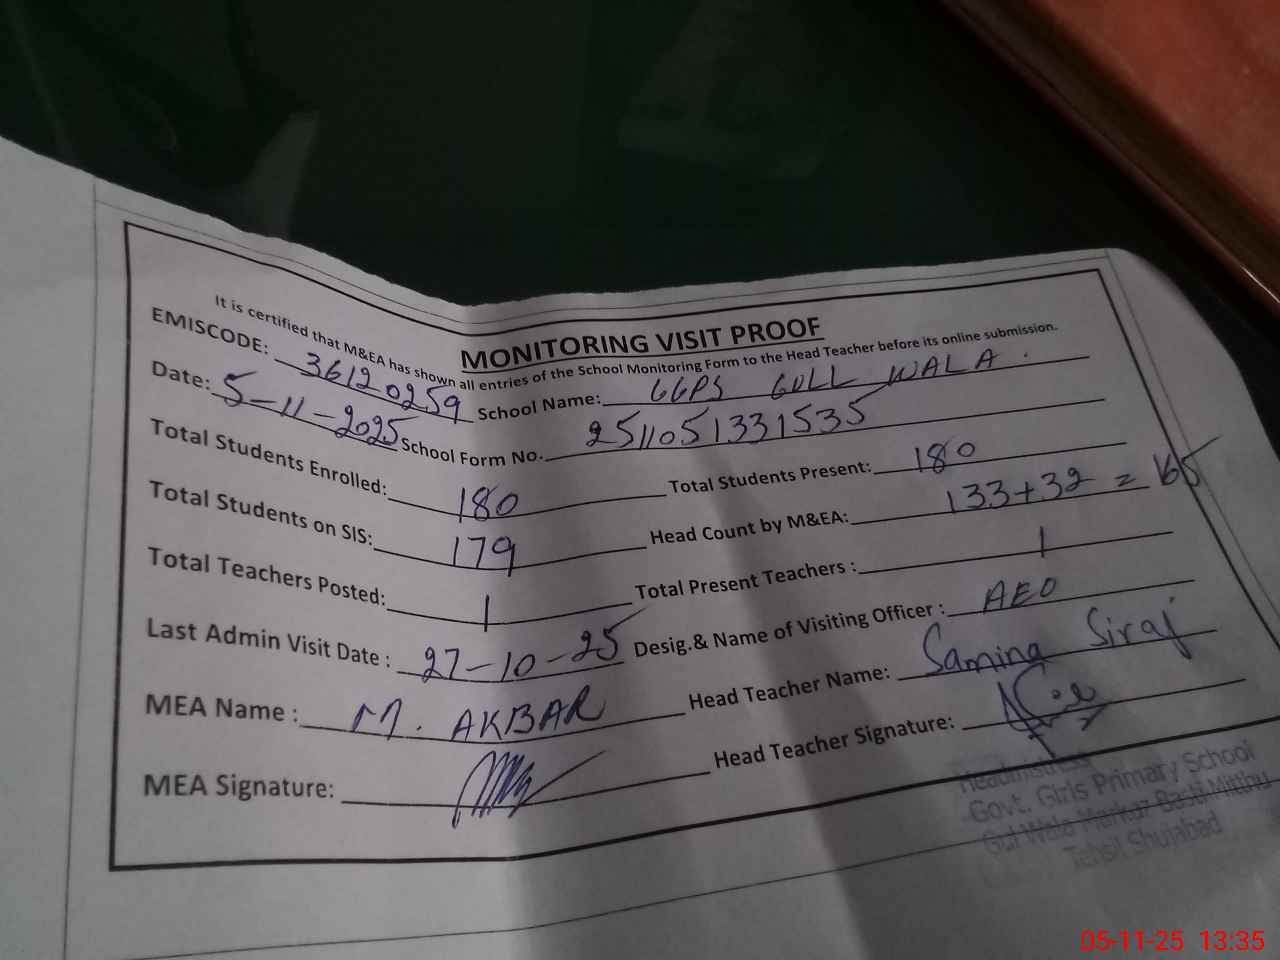 MONITORING VISIT PROOF
It is certified that M&EA has shown all entries of the School Monitoring Form to the Head Teacher before its online submission.
EMISCODE: 36120259 School Name: GGPS GULL WALA.
Date: 5-11-2025 School Form No. 2511051331535
Total Students Enrolled: 180 Total Students Present: 180
Total Students on SIS: 179 Head Count by M&EA: 133+32 = 165
Total Teachers Posted: 1 Total Present Teachers : 1
Last Admin Visit Date : 27-10-25 Desig.& Name of Visiting Officer : AEO
MEA Name : M. AKBAR Head Teacher Name: Samina Siraj
MEA Signature: Head Teacher Signature:
Headmistress
Govt. Girls Primary School
Gul Wala Markaz Basti Mitthu
Tehsil Shujabad
05-11-25 13:35